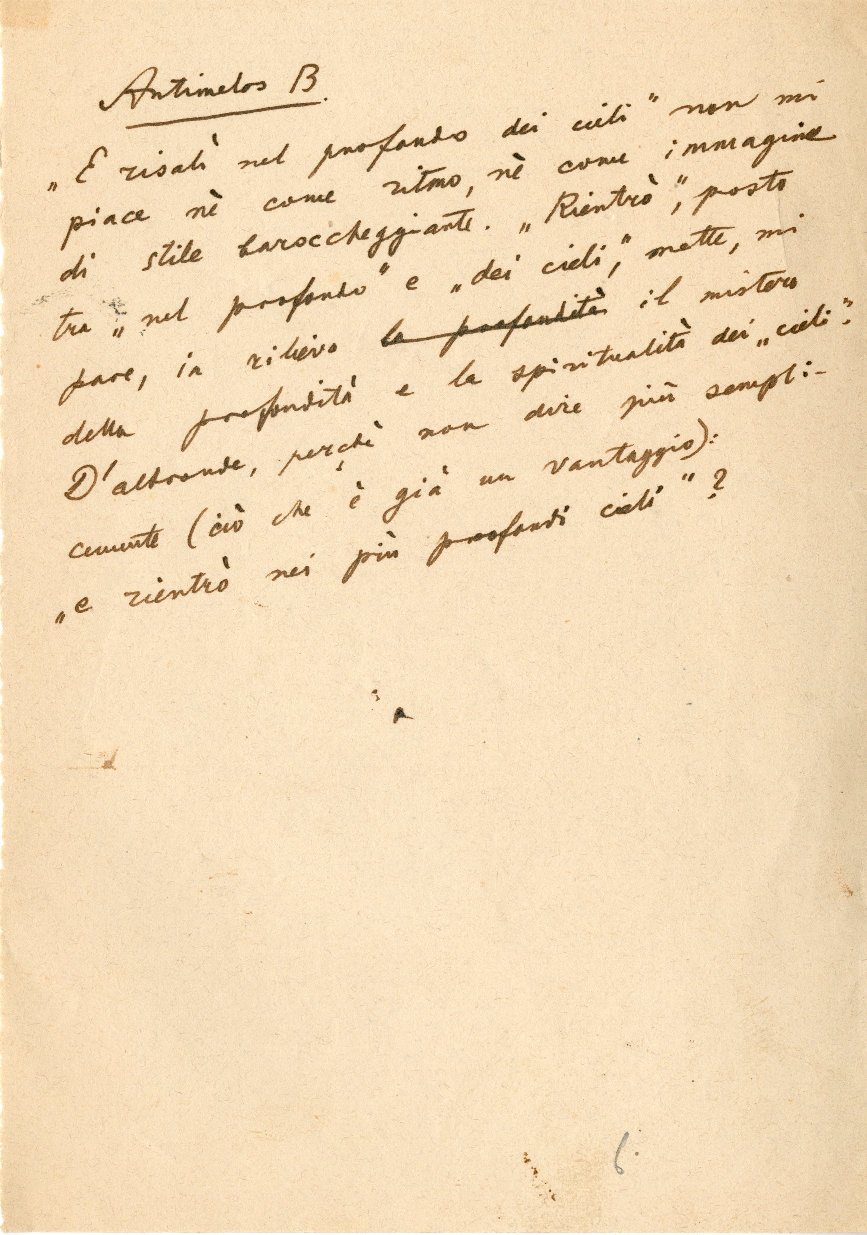 Antimelos B.
„E risalì nel profondo dei cieli" non mi
piace nè come ritmo, nè come immagine
di stile baroccheggiante. „Rientrò", posto
tra „nel profondo" e „dei cieli", mette, mi
pare, in rilievo la profondità il mistero
della profondità e la spiritualità dei „cieli".
D'altronde, perchè non dire più sempli-
cemente (ciò che è già un vantaggio):
„e rientrò nei più profondi cieli" ?
6.